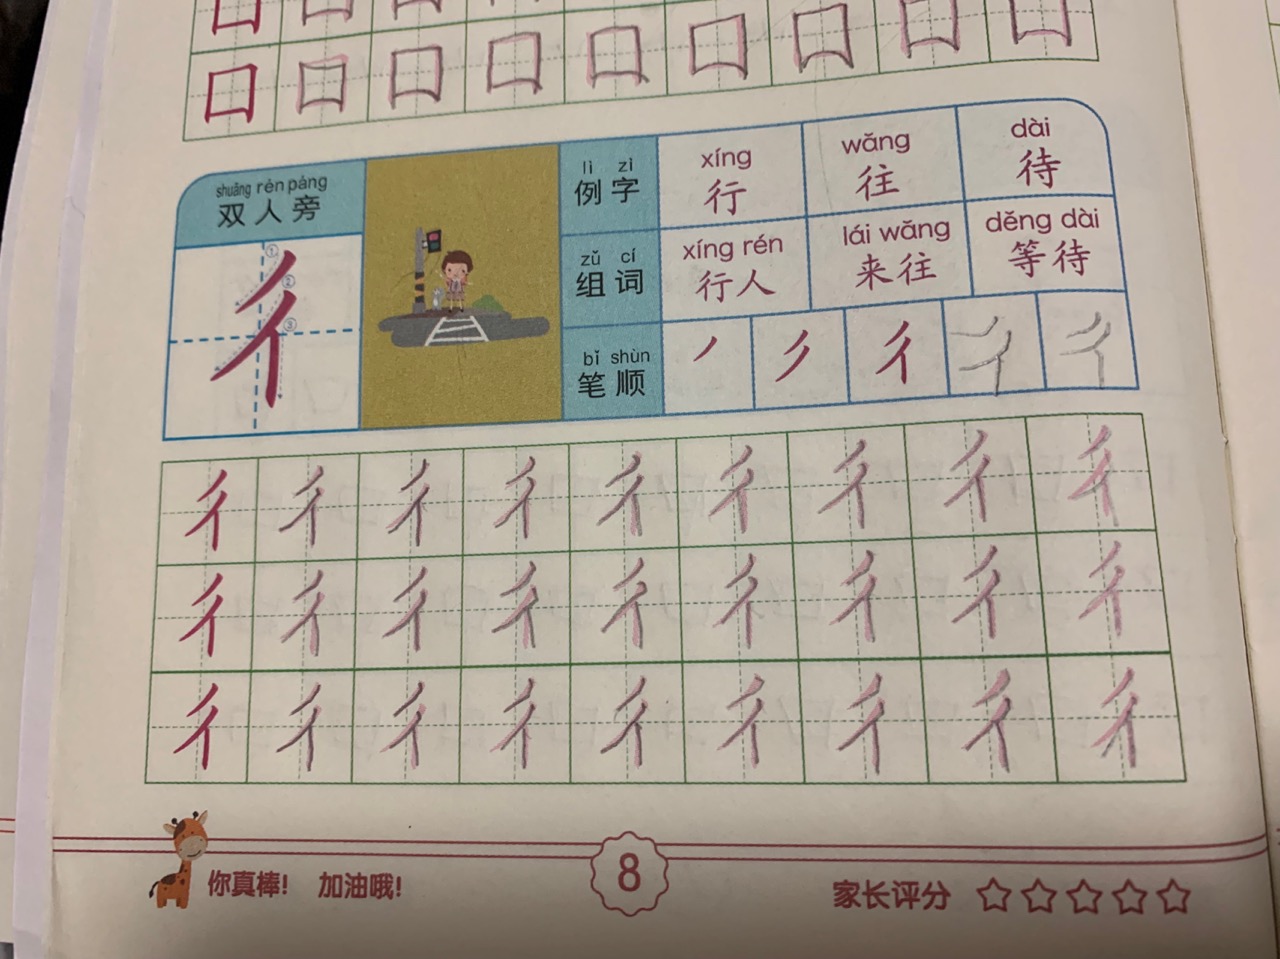 口 口 口 口 口 口 口 口 口
口 口 口 口 口 口 口 口 口
shuāng rén páng
双人旁
① ② ③
彳
lì zì
例字
xíng wǎng dài
行 往 待
zǔ cí
组词
xíng rén lái wǎng děng dài
行人 来往 等待
bǐ shùn
笔顺
㇒ 彡 彳 彳 彳
彳 彳 彳 彳 彳 彳 彳 彳 彳
彳 彳 彳 彳 彳 彳 彳 彳 彳
彳 彳 彳 彳 彳 彳 彳 彳 彳
你真棒! 加油哦!
8
家长评分 ☆☆☆☆☆